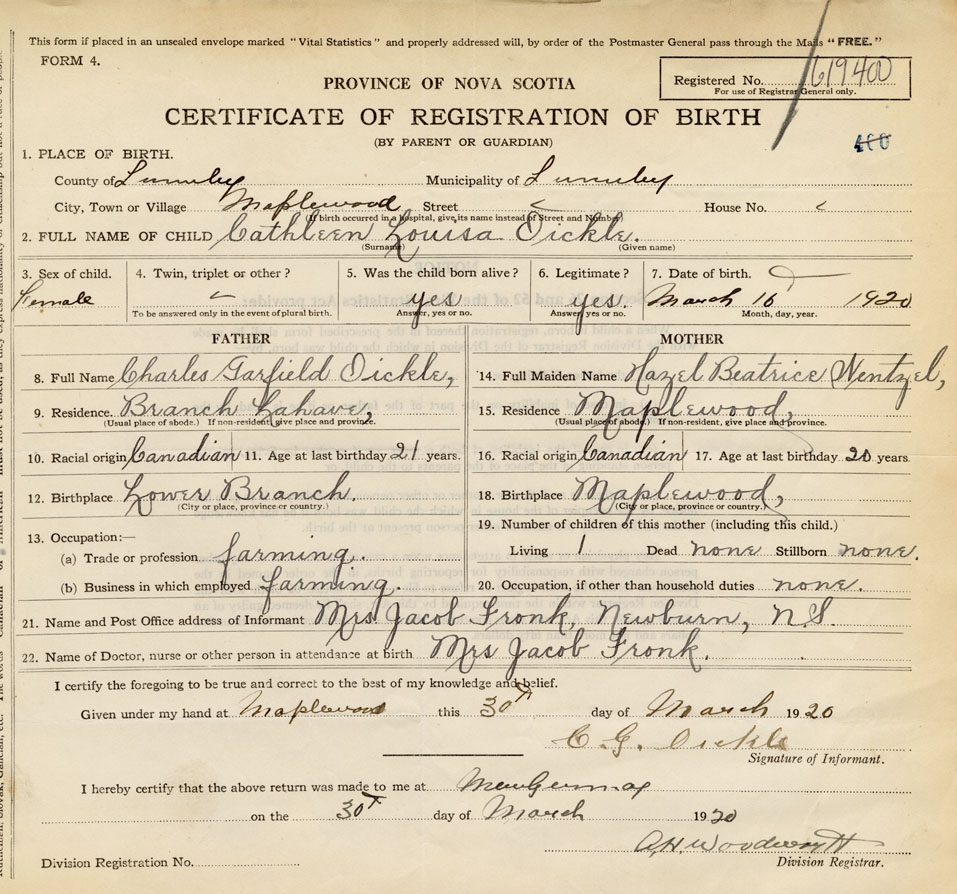 This form if placed in an unsealed envelope marked "Vital Statistics" and properly addressed will, by order of the Postmaster General pass through the Mails "FREE."
FORM 4.
PROVINCE OF NOVA SCOTIA
Registered No. 619400
For use of Registrar General only.
CERTIFICATE OF REGISTRATION OF BIRTH
(BY PARENT OR GUARDIAN)
400
1. PLACE OF BIRTH.
County of Lunnby Municipality of Lunnby
City, Town or Village Maplewood Street House No.
(If birth occurred in a hospital, give its name instead of Street and Number)
2. FULL NAME OF CHILD Cathleen Louisa Oickle.
(Surname) (Given name)
3. Sex of child. 4. Twin, triplet or other? 5. Was the child born alive? 6. Legitimate? 7. Date of birth.
Female yes yes. March 16 1920
To be answered only in the event of plural birth. Answer, yes or no. Answer, yes or no. Month, day, year.
FATHER MOTHER
8. Full Name Charles Garfield Oickle, 14. Full Maiden Name Hazel Beatrice Wentzel,
9. Residence. Branch Lahave, 15. Residence Maplewood,
(Usual place of abode.) If non-resident, give place and province. (Usual place of abode.) If non-resident, give place and province.
10. Racial origin Canadian 11. Age at last birthday 21 years. 16. Racial origin Canadian 17. Age at last birthday 20 years.
12. Birthplace Lower Branch. 18. Birthplace Maplewood,
(City or place, province or country.) (City or place, province or country.)
13. Occupation:— 19. Number of children of this mother (including this child.)
(a) Trade or profession farming. Living 1 Dead none Stillborn none.
(b) Business in which employed farming. 20. Occupation, if other than household duties none.
21. Name and Post Office address of Informant Mrs Jacob Fronk, Newburn, N.S.
22. Name of Doctor, nurse or other person in attendance at birth Mrs Jacob Fronk.
I certify the foregoing to be true and correct to the best of my knowledge and belief.
Given under my hand at Maplewood this 30 day of March 1920
C. G. Oickle
Signature of Informant.
I hereby certify that the above return was made to me at New Germany
on the 30 day of March 1920
Division Registration No. Division Registrar.